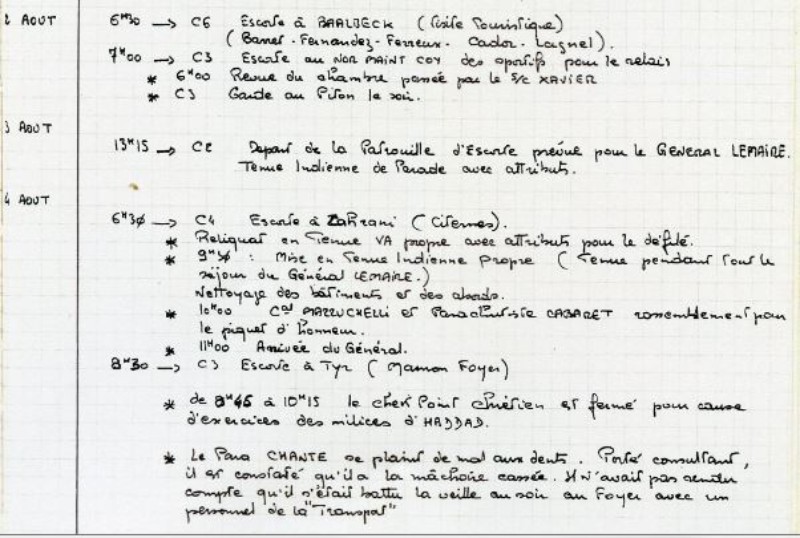 2 AOUT 6H30 → C6 Escorte à BAALBECK (Visite Touristique)
(Barret - Fernandez - Ferreux - Cador - Lagnel).
7H00 → C3 Escorte au NOR MAINT COY des sportifs pour le relais
* 6H00 Revue du chambre passée par le S/C XAVIER
* C3 Garde au Piton le soir.
3 AOUT
13H15 → C2 Depart de la Patrouille d'Escorte prévue pour le GENERAL LEMAIRE.
Tenue Indienne de Parade avec attributs.
4 AOUT
6H30 → C4 Escorte à ZaHrani (Citernes).
* Reliquat en Tenue VA propre avec attributs pour le défilé.
* : Mise en Tenue Indienne Propre (Tenue pendant Tout le
séjour du Général LEMAIRE.)
Nettoyage des bâtiments et des abords.
* 10H00 Cal MAZZUCHELLI et Parachutiste CABARET rassemblement pour
le piquet d'honneur.
* 11H00 Arrivée du Général.
8H30 → C3 Escorte à Tyr (Maman Foyer)
* de 8H45 à 10H15 le chek Point chrétien est fermé pour cause
d'exercices des milices d'HADDAD.
* Le Para CHANTE se plaint de mal aux dents. Porté consultant,
il est constaté qu'il a la mâchoire cassée. Il N'avait pas rendu
compte qu'il s'était battu la veille au soir au Foyer avec un
personnel de la "Transpat"